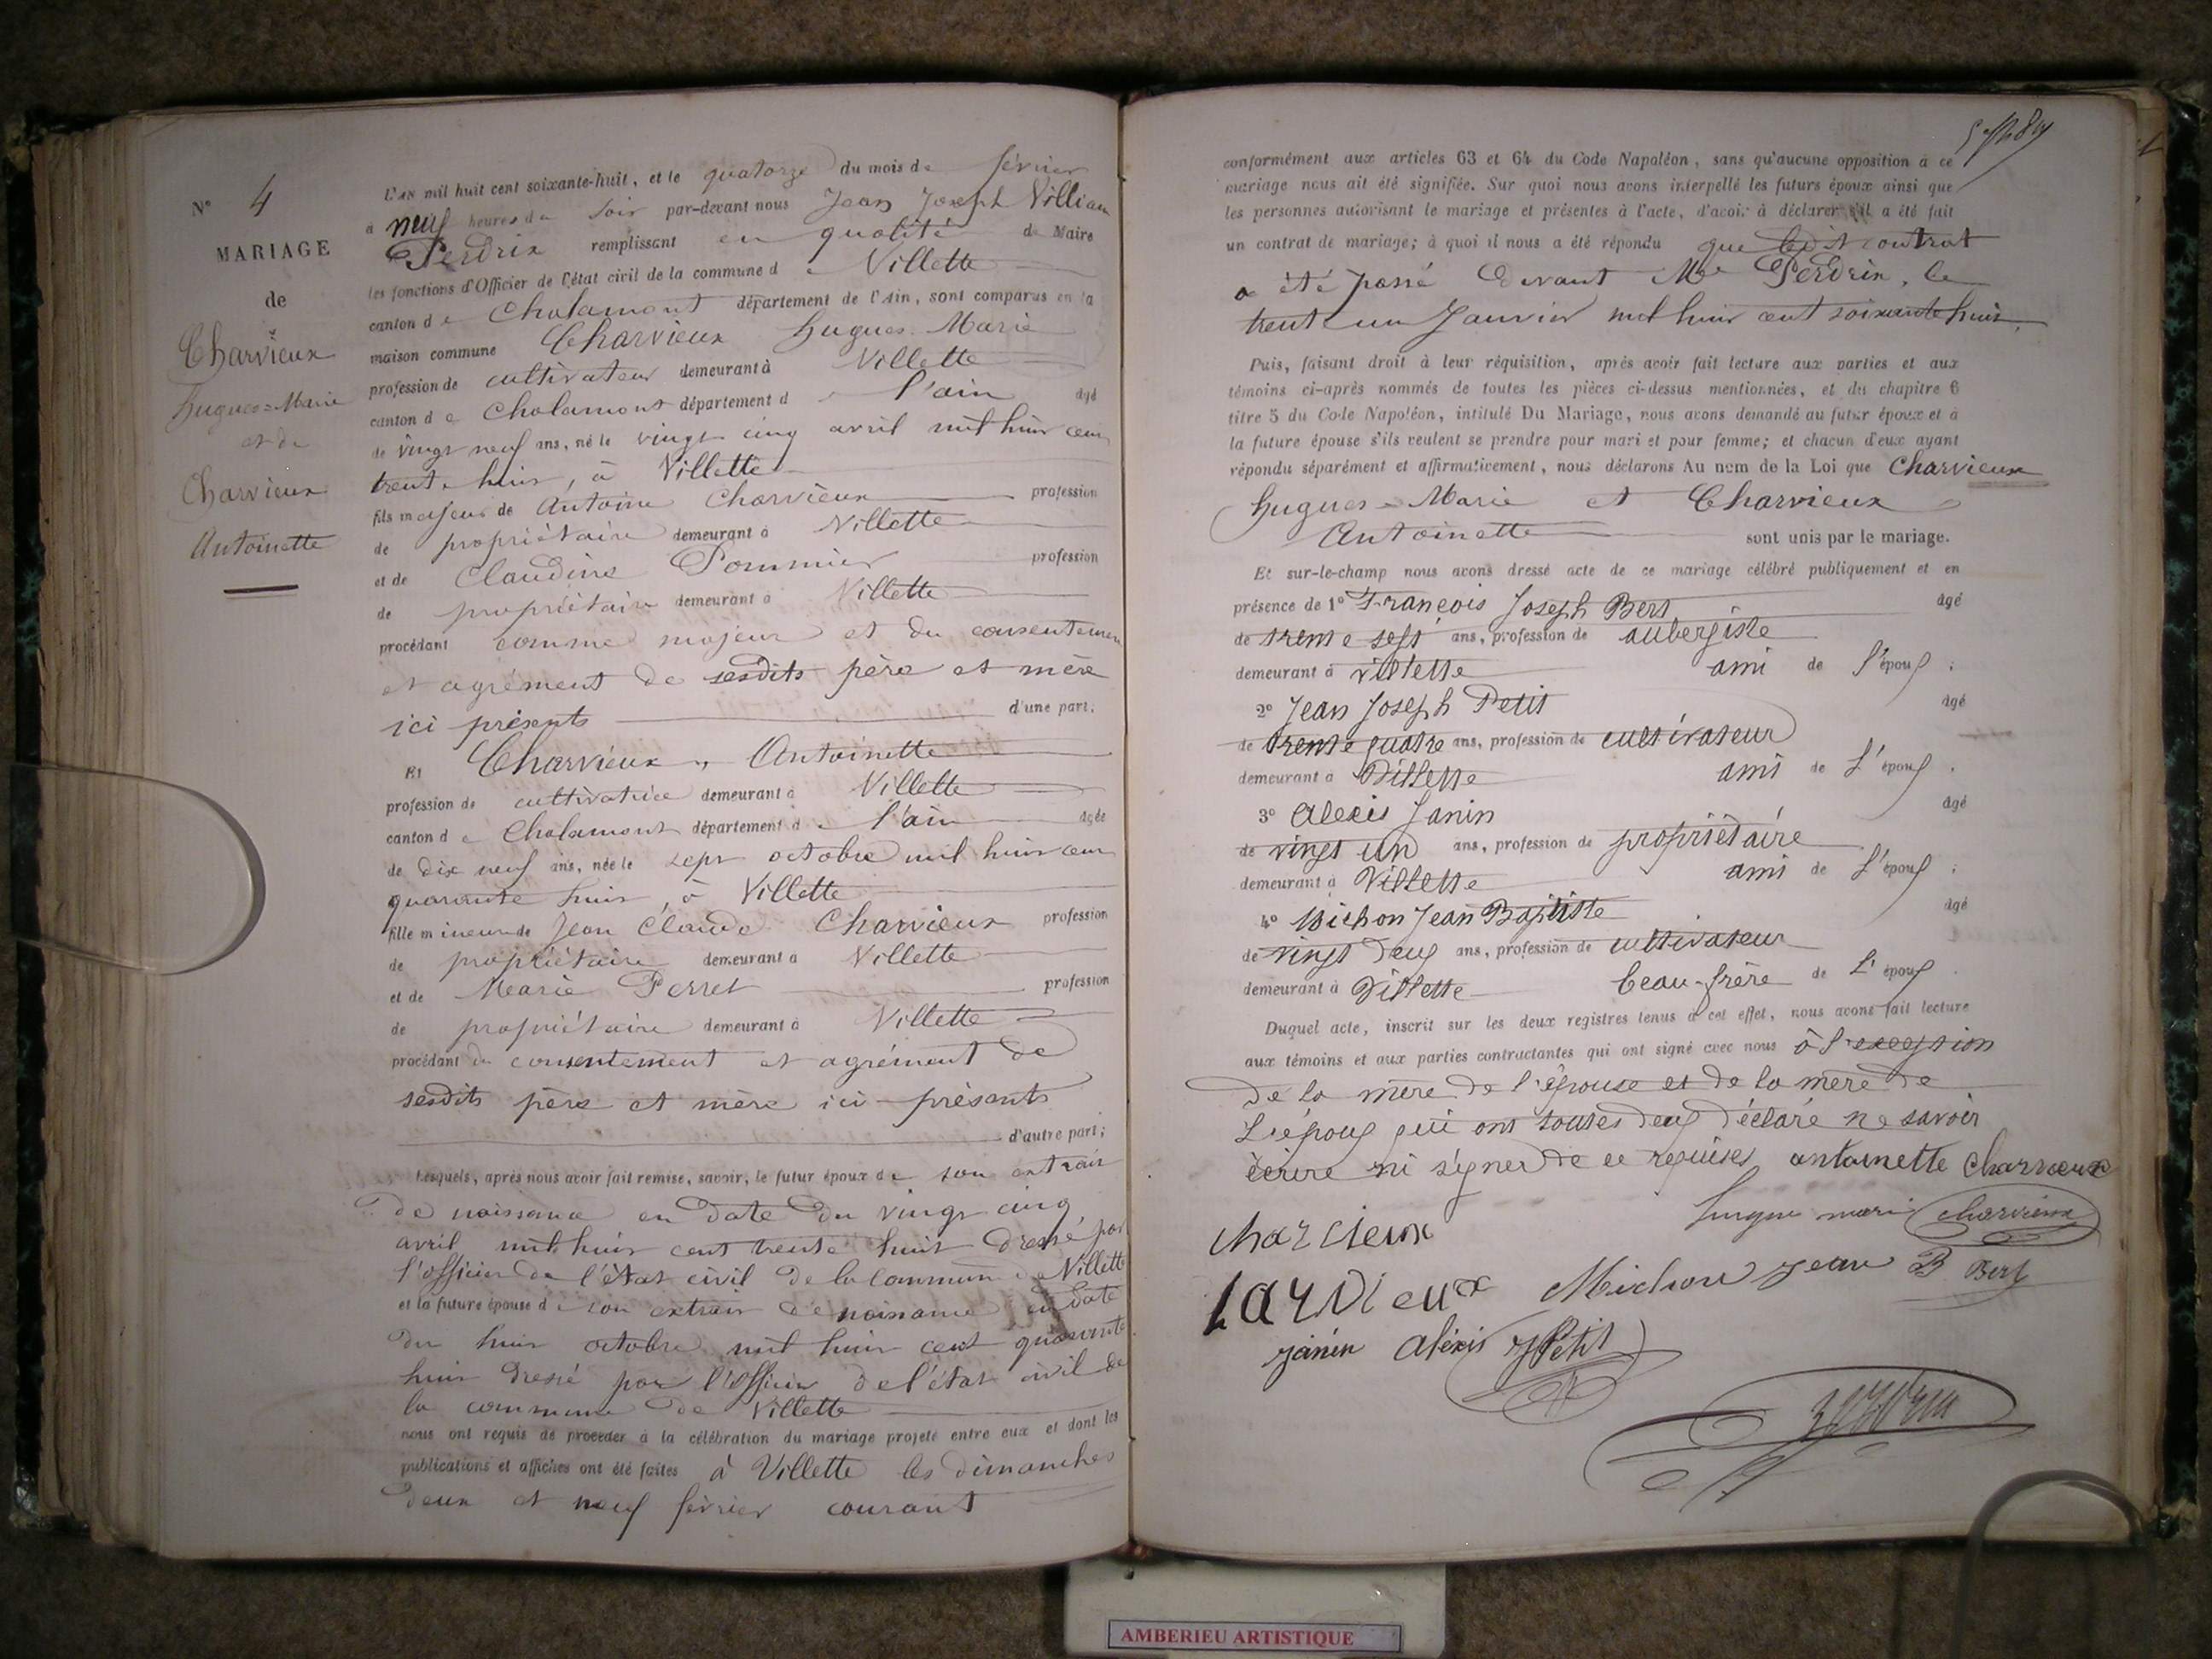 N° 4
MARIAGE
de
Charvieux
Hugues-Marie
et de
Charvieux
Antoinette
L'AN mil huit cent soixante-huit, et le quatorze du mois de février
à neuf heures du soir par-devant nous Jean Joseph Villiam
Perdrix remplissant en qualité de Maire
les fonctions d'Officier de l'état civil de la commune de Villette
canton de Chalamont département de l'Ain, sont comparus en la
maison commune Charvieux Hugues-Marie
profession de cultivateur demeurant à Villette
canton de Chalamont département de l'ain âgé
de vingt neuf ans, né le vingt cinq avril mil huit cent
trente huit, à Villette
fils majeur de Antoine Charvieux profession
de propriétaire demeurant à Villette
et de Claudine Pommier profession
de propriétaire demeurant à Villette
procédant comme majeur et du consentement
et agrément de sesdits père et mère
ici présents d'une part;
Et Charvieux, Antoinette
profession de cultivatrice demeurant à Villette
canton de Chalamont département de l'ain âgée
de dix neuf ans, née le sept octobre mil huit cent
quarante huit, à Villette
fille mineure de Jean Claude Charvieux profession
de propriétaire demeurant à Villette
et de Marie Perret profession
de propriétaire demeurant à Villette
procédant du consentement et agrément de
sesdits père et mère ici présents
d'autre part;
Lesquels, après nous avoir fait remise, savoir, le futur époux de son extrait
de naissance en date du vingt cinq
avril mil huit cent trente huit dressé par
l'officier de l'état civil de la commune de Villette
et la future épouse de son extrait de naissance en date
du huit octobre mil huit cent quarante
huit dressé par l'officier de l'état civil de
la commune de Villette
nous ont requis de procéder à la célébration du mariage projeté entre eux et dont les
publications et affiches ont été faites à Villette les dimanches
deux et neuf février courant
conformément aux articles 63 et 64 du Code Napoléon, sans qu'aucune opposition à ce
mariage nous ait été signifiée. Sur quoi nous avons interpellé les futurs époux ainsi que
les personnes autorisant le mariage et présentes à l'acte, d'avoir à déclarer s'il a été fait
un contrat de mariage; à quoi il nous a été répondu que ledit contrat
a été passé devant Me Perdrix, le
trente un Janvier mil huit cent soixante huit.
Puis, faisant droit à leur réquisition, après avoir fait lecture aux parties et aux
témoins ci-après nommés de toutes les pièces ci-dessus mentionnées, et du chapitre 6
titre 5 du Code Napoléon, intitulé Du Mariage, nous avons demandé au futur époux et à
la future épouse s'ils veulent se prendre pour mari et pour femme; et chacun d'eux ayant
répondu séparément et affirmativement, nous déclarons Au nom de la Loi que Charvieux
Hugues-Marie et Charvieux
Antoinette sont unis par le mariage.
Et sur-le-champ nous avons dressé acte de ce mariage célébré publiquement et en
présence de 1° François Joseph Bert âgé
de trente sept ans, profession de aubergiste
demeurant à villette ami de l'époux;
2° Jean Joseph Petit âgé
de trente quatre ans, profession de cultivateur
demeurant à Villette ami de L'époux.
3° Alexis Janin âgé
de vingt un ans, profession de propriétaire
demeurant à Villette ami de L'époux;
4° Michon Jean Baptiste âgé
de vingt deux ans, profession de cultivateur
demeurant à Villette beau-frère de L'époux.
Duquel acte, inscrit sur les deux registres tenus à cet effet, nous avons fait lecture
aux témoins et aux parties contractantes qui ont signé avec nous à l'exception
de la mère de l'épouse et de la mère de
L'époux qui ont toutes deux déclaré ne savoir
écrire ni signer de ce requises antoinette Charvieux
hugue marie charvieux
charvieux
Michon jean B Bert
janin alexis J Petit
AMBERIEU ARTISTIQUE